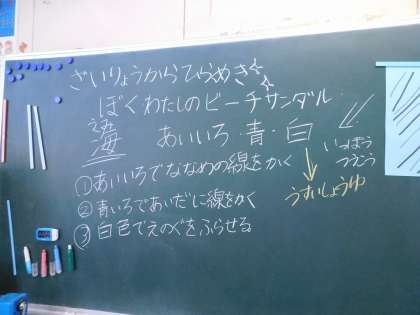 ざいりょうからひらめき
ぼくわたしのビーチサンダル
海 あいいろ・青・白
いっぽう
つうこう
①あいいろでななめの線をかく
うすいしょうゆ
②青いろであいだに線をかく
③白色でえのぐをふらせる